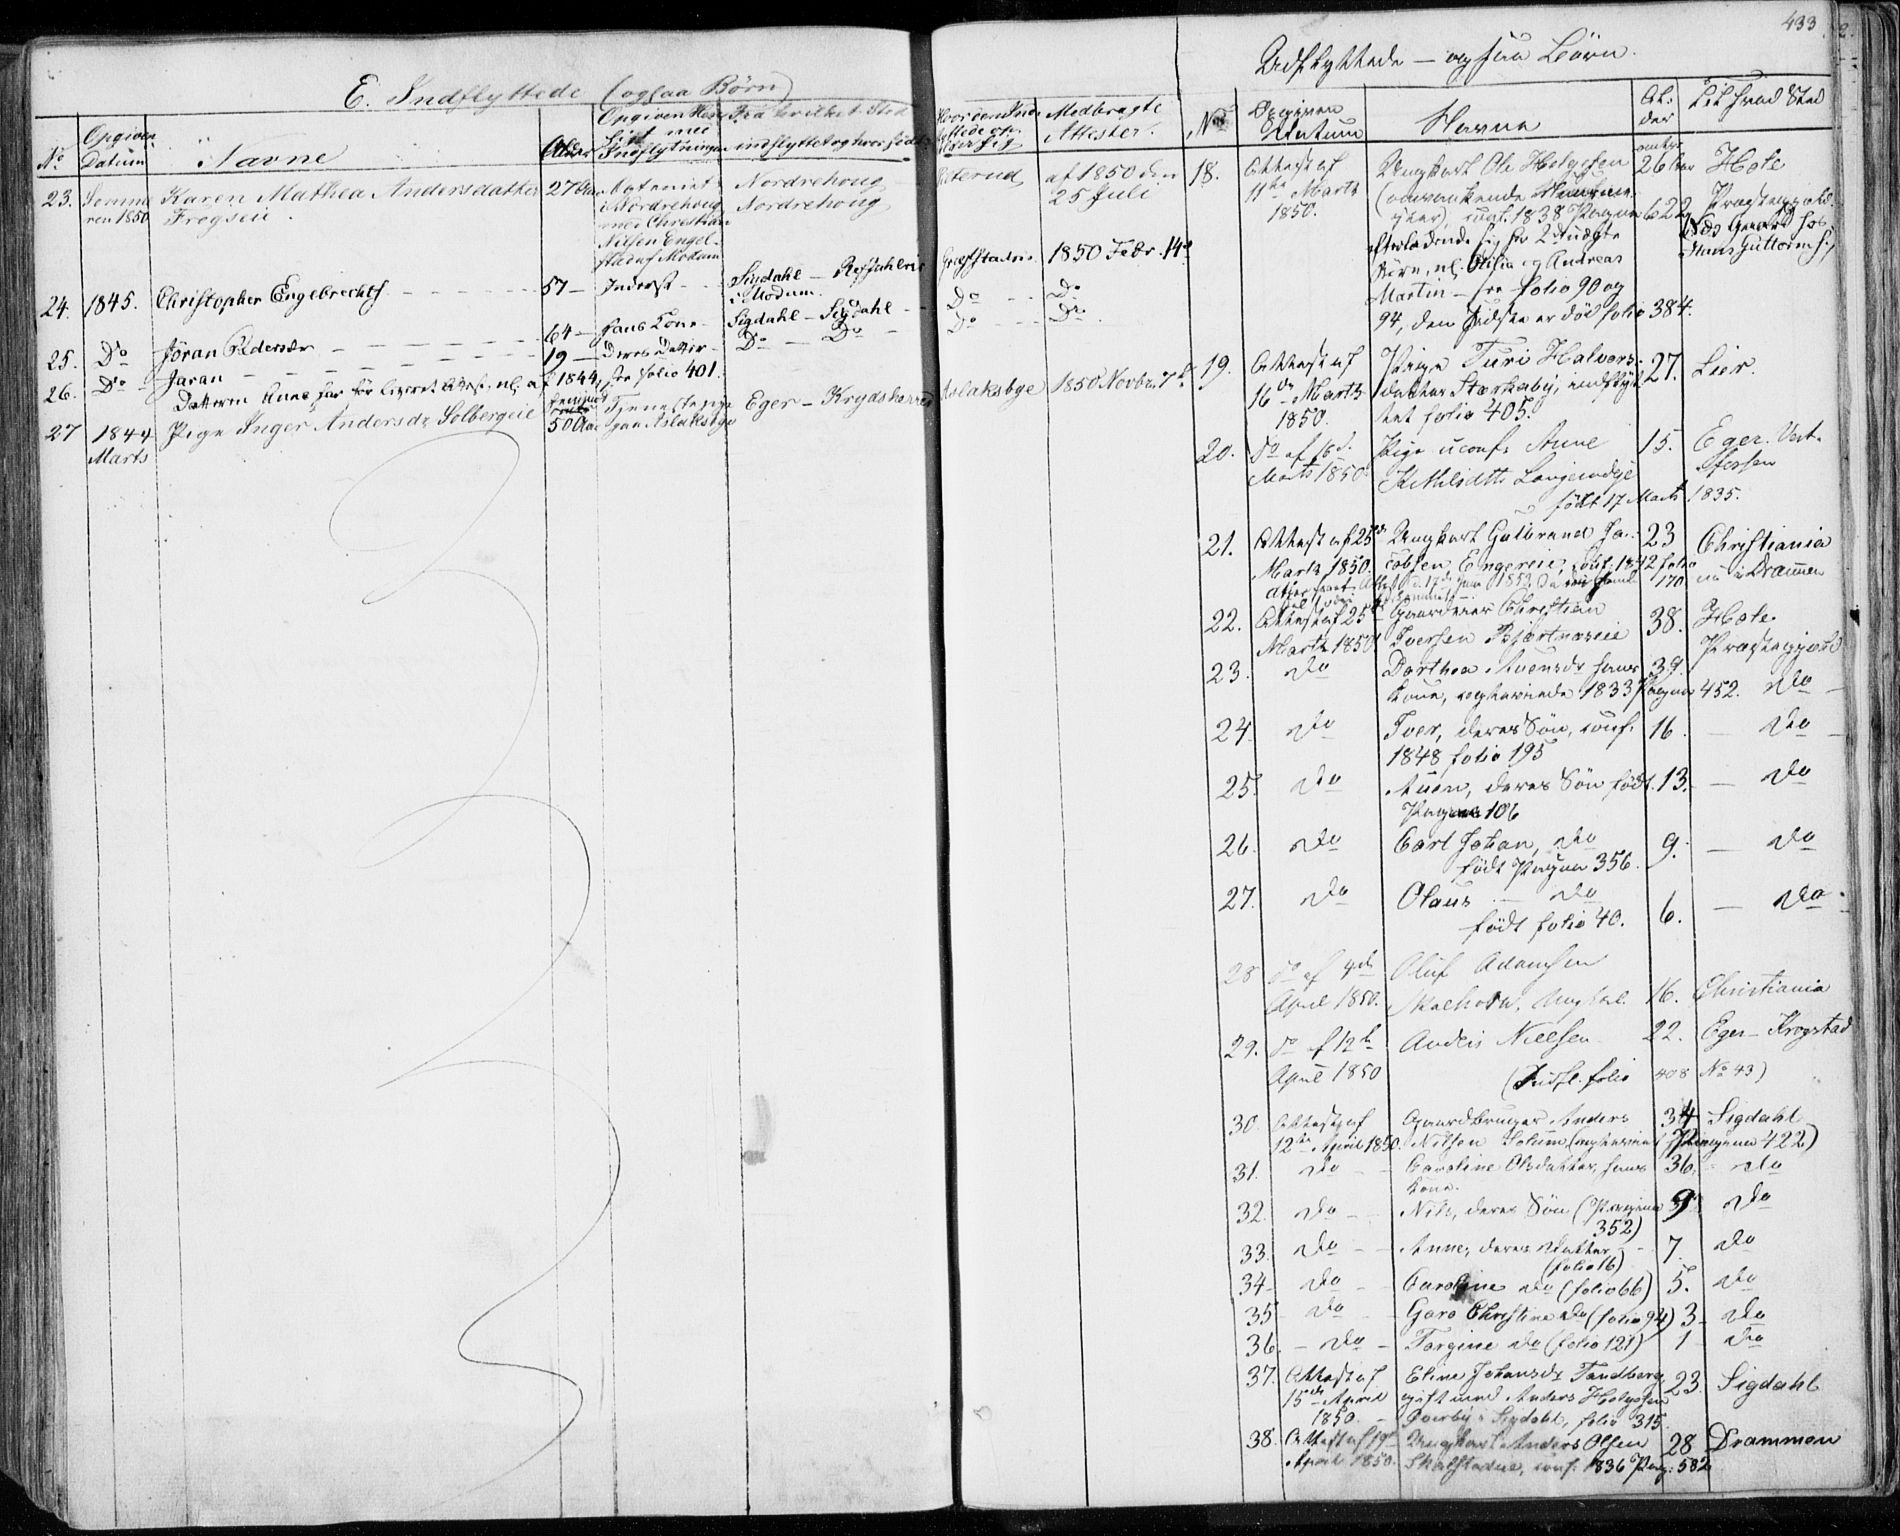 433
E. Indflyttede (ogsaa Børn)
No
Opgiven Datum
Navne
Alder
Opgiven Hensigt med Indflytningen
Fra hvilket Sted indflyttet og hvor født
Medbragte Attester.
23. Sommeren 1850 Karen Mathea Andersdatter 27 Nordrehoug af 1850 den
Frogseie. Nordrehoug Nordrehoug 25 Juli
med Christian
Nilsen Engel-
af Modum
24. 1845. Christopher Engebrechts 57 – Inderst – Sigdahl – 1850 Febr. 14de
i Modum.
25. Do Jöran Pedersdr 64 – hans Kone – Sigdahl – Sigdahl – Do Do
26. Do Jaran 19 – Deres Datter – Do – Do Do Do
Datteren Anne har før leveret Attest, nl. af 1844, see folio 401.
27 1844 Marts Pige Inger Andersdr Solbergeie 50 Aar Tjenestepige paa Aslaksbye Eger – Krydsherred Aslaksbye 1850 Novbr. 7de
Udflyttede – ogsaa Børn.
No
Opgiven Datum
Navne
Alder
Til hvad Sted
18. Attest af Ungkarl Ole Helgesen 26 Aar Hole
11te Marts (omvankende Præstegjeld
1850. conf. 1838 Pagina 622
efterladende sig her 2 uægte Hans Guttorms
Børn, nl. Otilia og Andreas
Martin – see folio 90 og
94, den sidste er død folio 384.
19. Attest af Pige Turi Halvors- 27. Lier.
16de Marts datter Størkaby, indflyt-
1850. tet folio 405.
20. Do af 16d. Pige uconf. Anne 15. Eger. Vest-
Marts 1850. Ketilsdtr Langerudeje fossen
født 17 Marts 1835.
21. Attest af 25de Ungkarl Gulbrand Ja- 23 Christiania
Marts 1850. cobsen Engereie, conf. 1842 folio 170 nu i Drammen
22. Attest af 25de Gaardeier Christian 38. Hole
Marts 1850. Iversen Bjertnæseie Præstegjeld
23. Do Dorthea Auensdr hans 39.
Kone, copulerede 1833 Pagina 452. Do
24. Do Iver, deres Søn, conf. 16. – Do
1848 folio 195
25. Do Auen, deres Søn født 13. – Do
Pagina 106
26. Do Carl Johan, Do 9. – Do
født Pagina 356.
27. Do Olaus – Do 6. – Do
født folio 40.
28 Do af 4de Oluf Adamsen
April 1850. Ungkarl. 16. Christiania
29. Do af 12te Anders Nielsen 22. Eger – Krogstad
April 1850 (Indfl. folio 408 No 43)
30. Attest af Gaardbruger Anders 34 Sigdahl
12te April 1850. Nilsen Solum (copuleret Pagina 422)
31. Do Caroline Olsdatter, hans 36. Do
Kone.
32. Do Nils, deres Søn (Pagina 9 Do
352)
33. Do Anne, deres Datter 7. Do
(folio 16)
34 Do Caroline Do (folio 66) 5. Do
35 Do Goro Christine Do (folio 94) 3 Do
36. Do Torgine Do (folio 121) 1 Do
37. Attest af Eline Johansdr Tandberg 23. Sigdahl
15de April gift med Anders Helgesen
1850. Overby i Sigdahl, folio 315.
38. Attest af 19de Ungkarl Anders Olsen 28 Drammen
April 1850. Skalstadeie, conf. 1836 Pag. 582